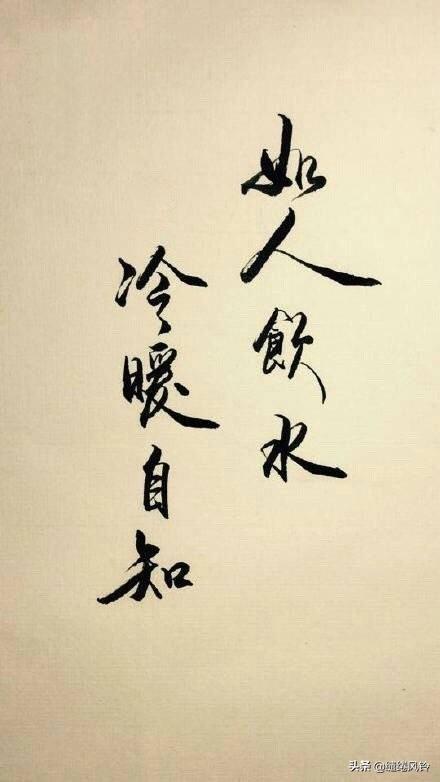 如人飲水
冷暖自知
头条 @缱绻风铃